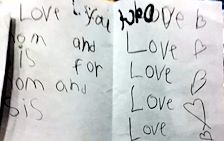 Love you
om and
is for
om and
sis
Love
Love
Love
Love
Love